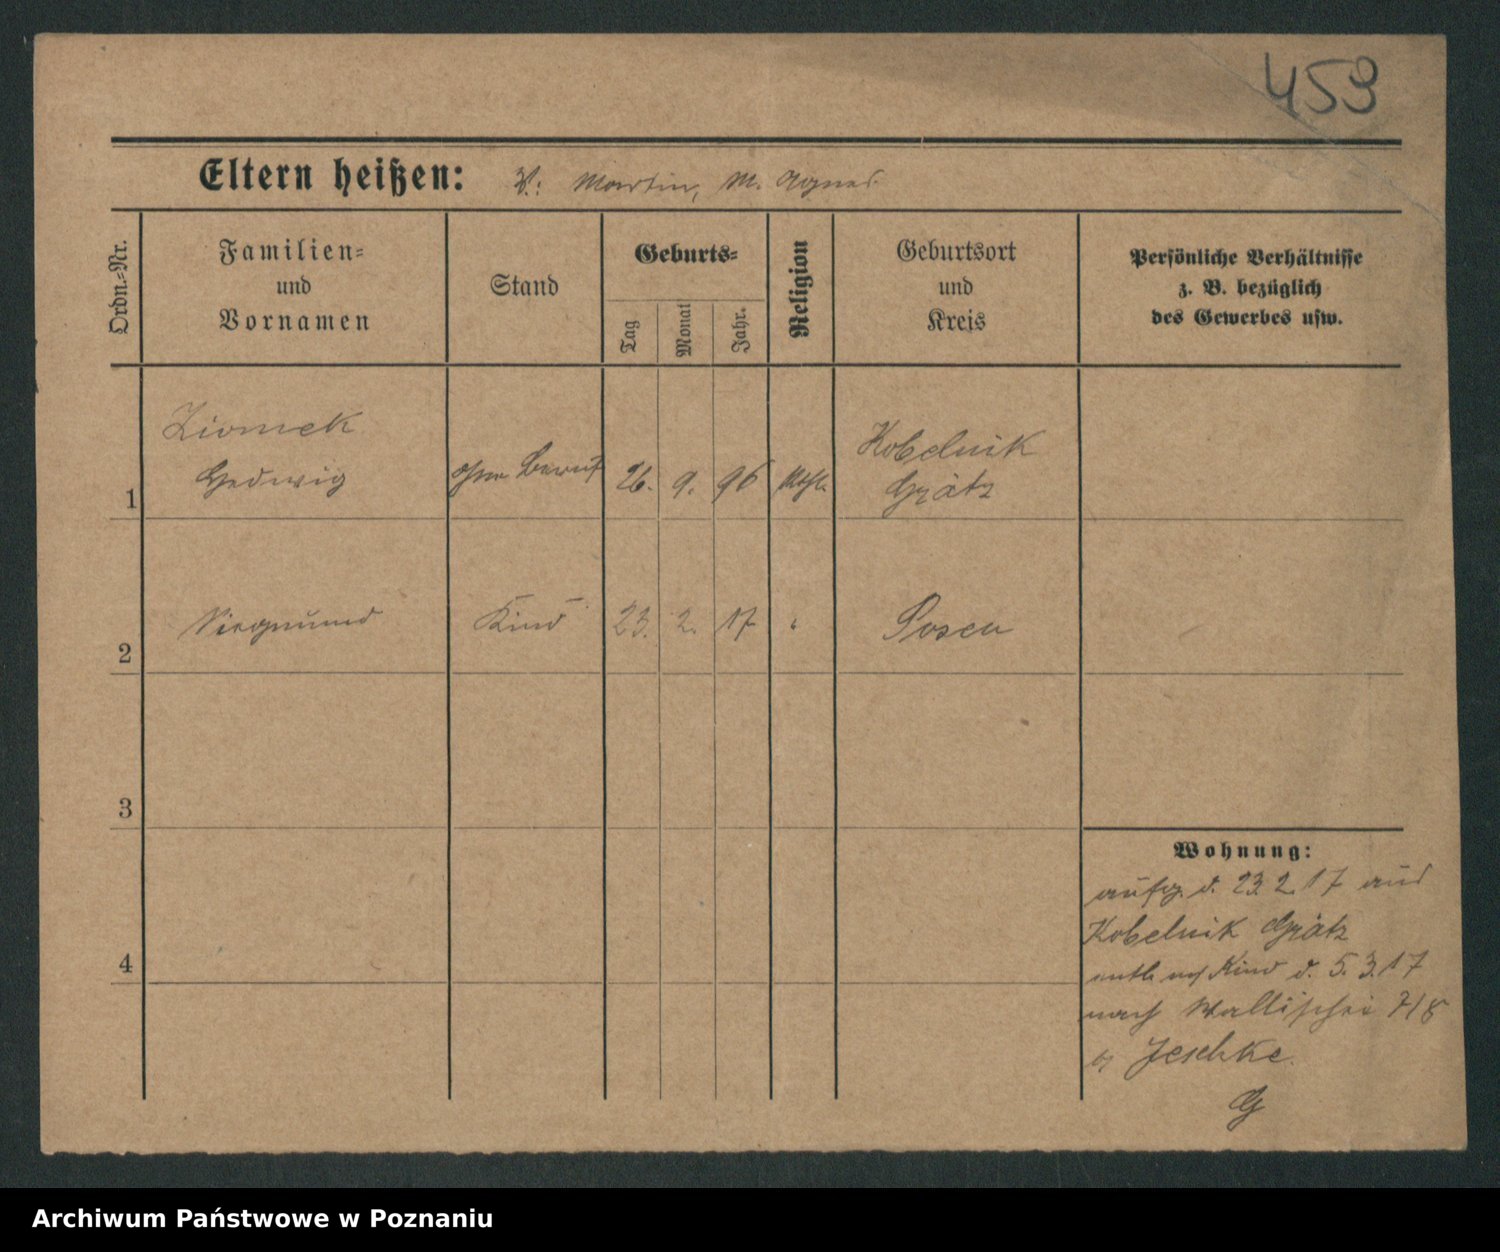 453
Eltern heißen: V: Martin, M. Agnes
Ordn.-Nr.
Familien-
und
Vornamen
Stand
Geburts-
Tag
Monat
Jahr.
Religion
Geburtsort
und
Kreis
Persönliche Verhältnisse
z. B. bezüglich
des Gewerbes usw.
Ziomek
Kobelnik
1 Hedwig ohne Beruf 26. 9. 96 Kath. Grätz
2 Siegmund Kind 23. 2. 17 " Posen
3
4
Wohnung:
aufg. d. 23.2.17 aus
Kobelnik Grätz
entl. Kind d. 5.3.17
nach Wallischei 7/8
b/ Jeschke.
G
Archiwum Państwowe w Poznaniu